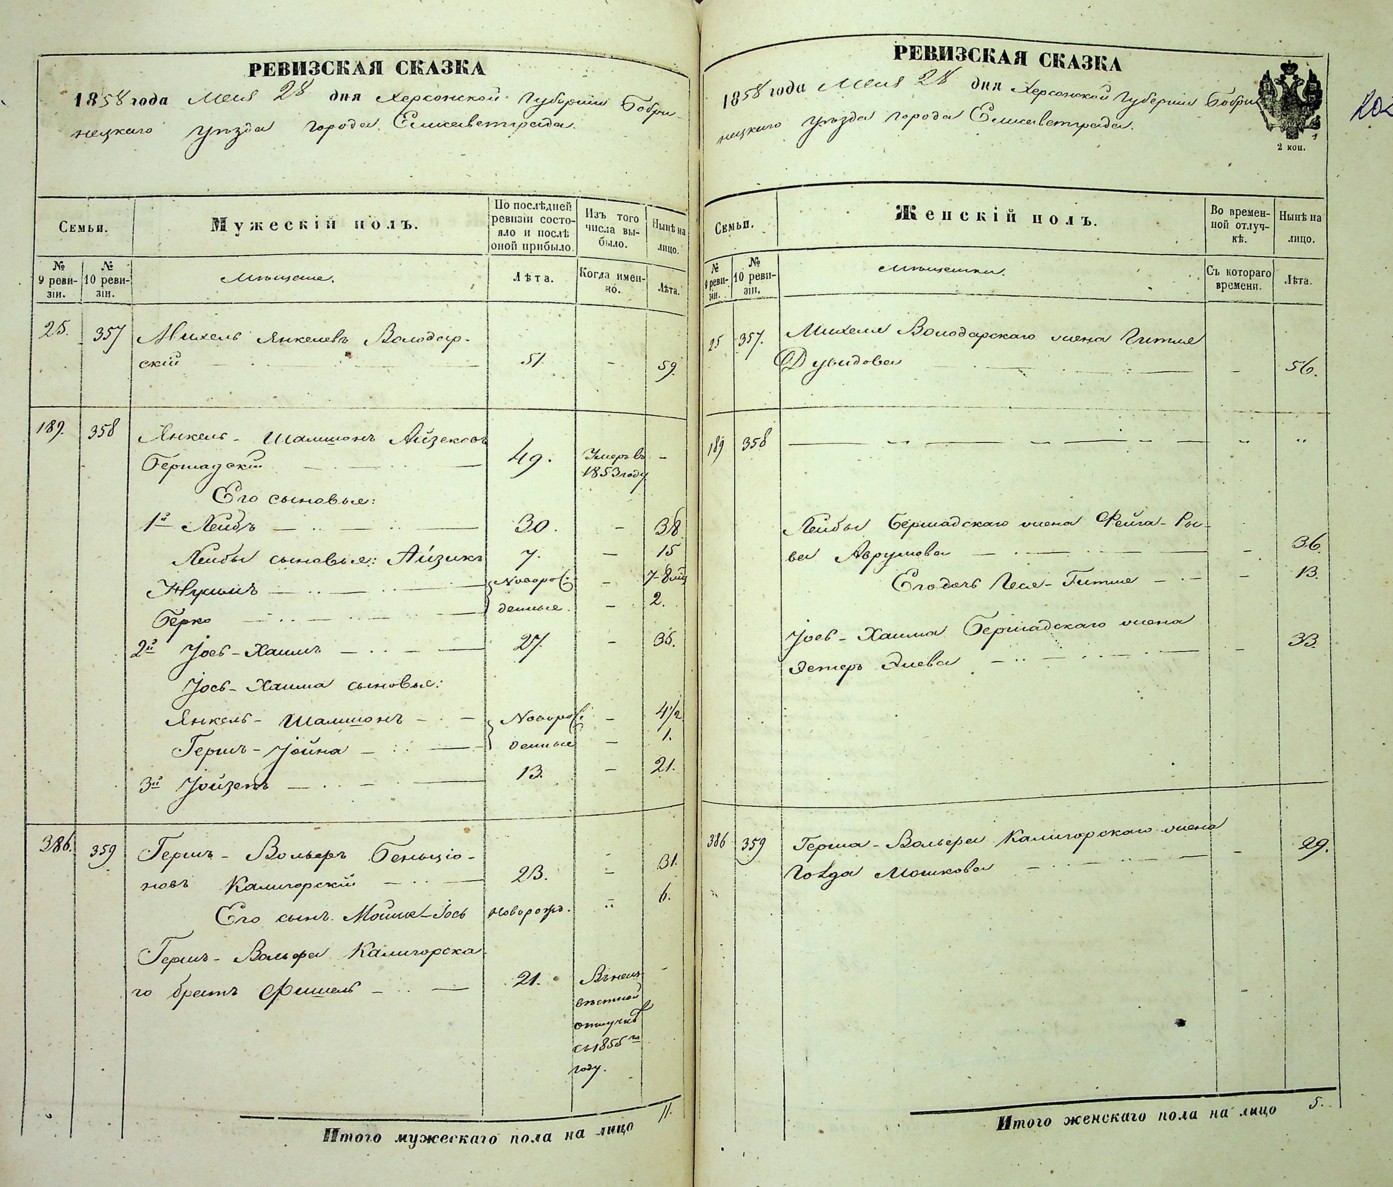 РЕВИЗСКАЯ СКАЗКА
1858 года Мая 28 дня Херсонской Губернии Бобри
нецкаго уѣзда города Елисаветграда.
Семьи.
Мужескій полъ.
По послѣдней ревизіи состояло и послѣ оной прибыло.
Изъ того числа выбыло.
Нынѣ на лицо.
№ 9 ревизіи.
№ 10 ревизіи.
Мѣщане.
Лѣта.
Когда именно.
Лѣта.
25. 357 Михель Янкелевъ Володар-
скій 51. 59.
189. 358 Янкель-Шамшонъ Айзековъ
Бершадскій 49. Умеръ въ 1853 году
Его сыновья:
1й Лейбъ 30. 38.
Лейбы сыновья: Айзикъ 7. 15
Нухимъ Новорож- 7-8 мѣ
Берко денные. 2.
2й Іось-Хаимъ 27. 35.
Іось-Хаима сыновья:
Янкель-Шамшонъ Новорож- 4 1/2
Гершъ-Іойна денные 1.
3й Іойзепъ 13. 21.
386. 359 Гершъ-Вольфъ Бенціо-
новъ Калигорскій 23. 31.
Его сынъ Мошка-Іось новорожд. 6.
Гершъ-Вольфа Калигорска-
го братъ Фишель 21. Въ неиз-
вѣстной
отлучкѣ
съ 1855го
году.
Итого мужескаго пола на лицо 11.
РЕВИЗСКАЯ СКАЗКА
1858 года Мая 28 дня Херсонской Губерніи Бобри
нецкаго уѣзда города Елисаветграда.
2 коп.
202
Семьи.
Женскій полъ.
Во временной отлучкѣ.
Нынѣ на лицо.
№ 9 ревизіи.
№ 10 ревизіи.
Мѣщанки.
Съ котораго времени.
Лѣта.
25 357. Михеля Володарскаго жена Гитля
Дувидова 56.
189 358
Лейбы Бершадскаго жена Фейга-Ри-
ва Аврумова 36.
Его дочь Лея-Гитля 13.
Іось-Хаима Бершадскаго жена
Эстеръ 33.
386 359 Герша-Вольфа Калигорскаго жена
Голда Мошкова 29.
Итого женскаго пола на лицо 5.